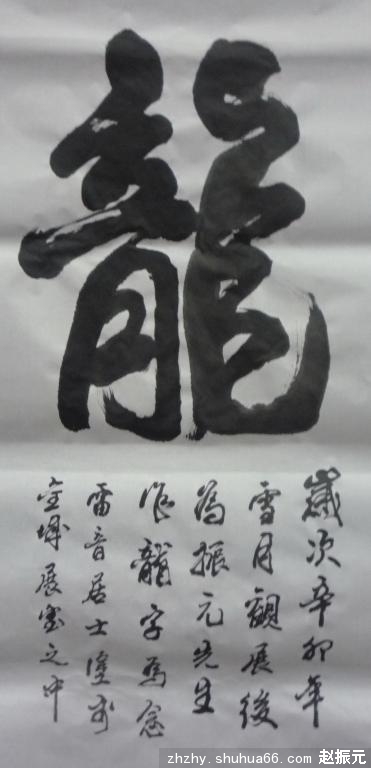 龍
歲次辛卯年
雪月觀展後
為振元先生
作龍字為念
雷音居士
展室之中
zhzhy.shuhua66.com 赵振元